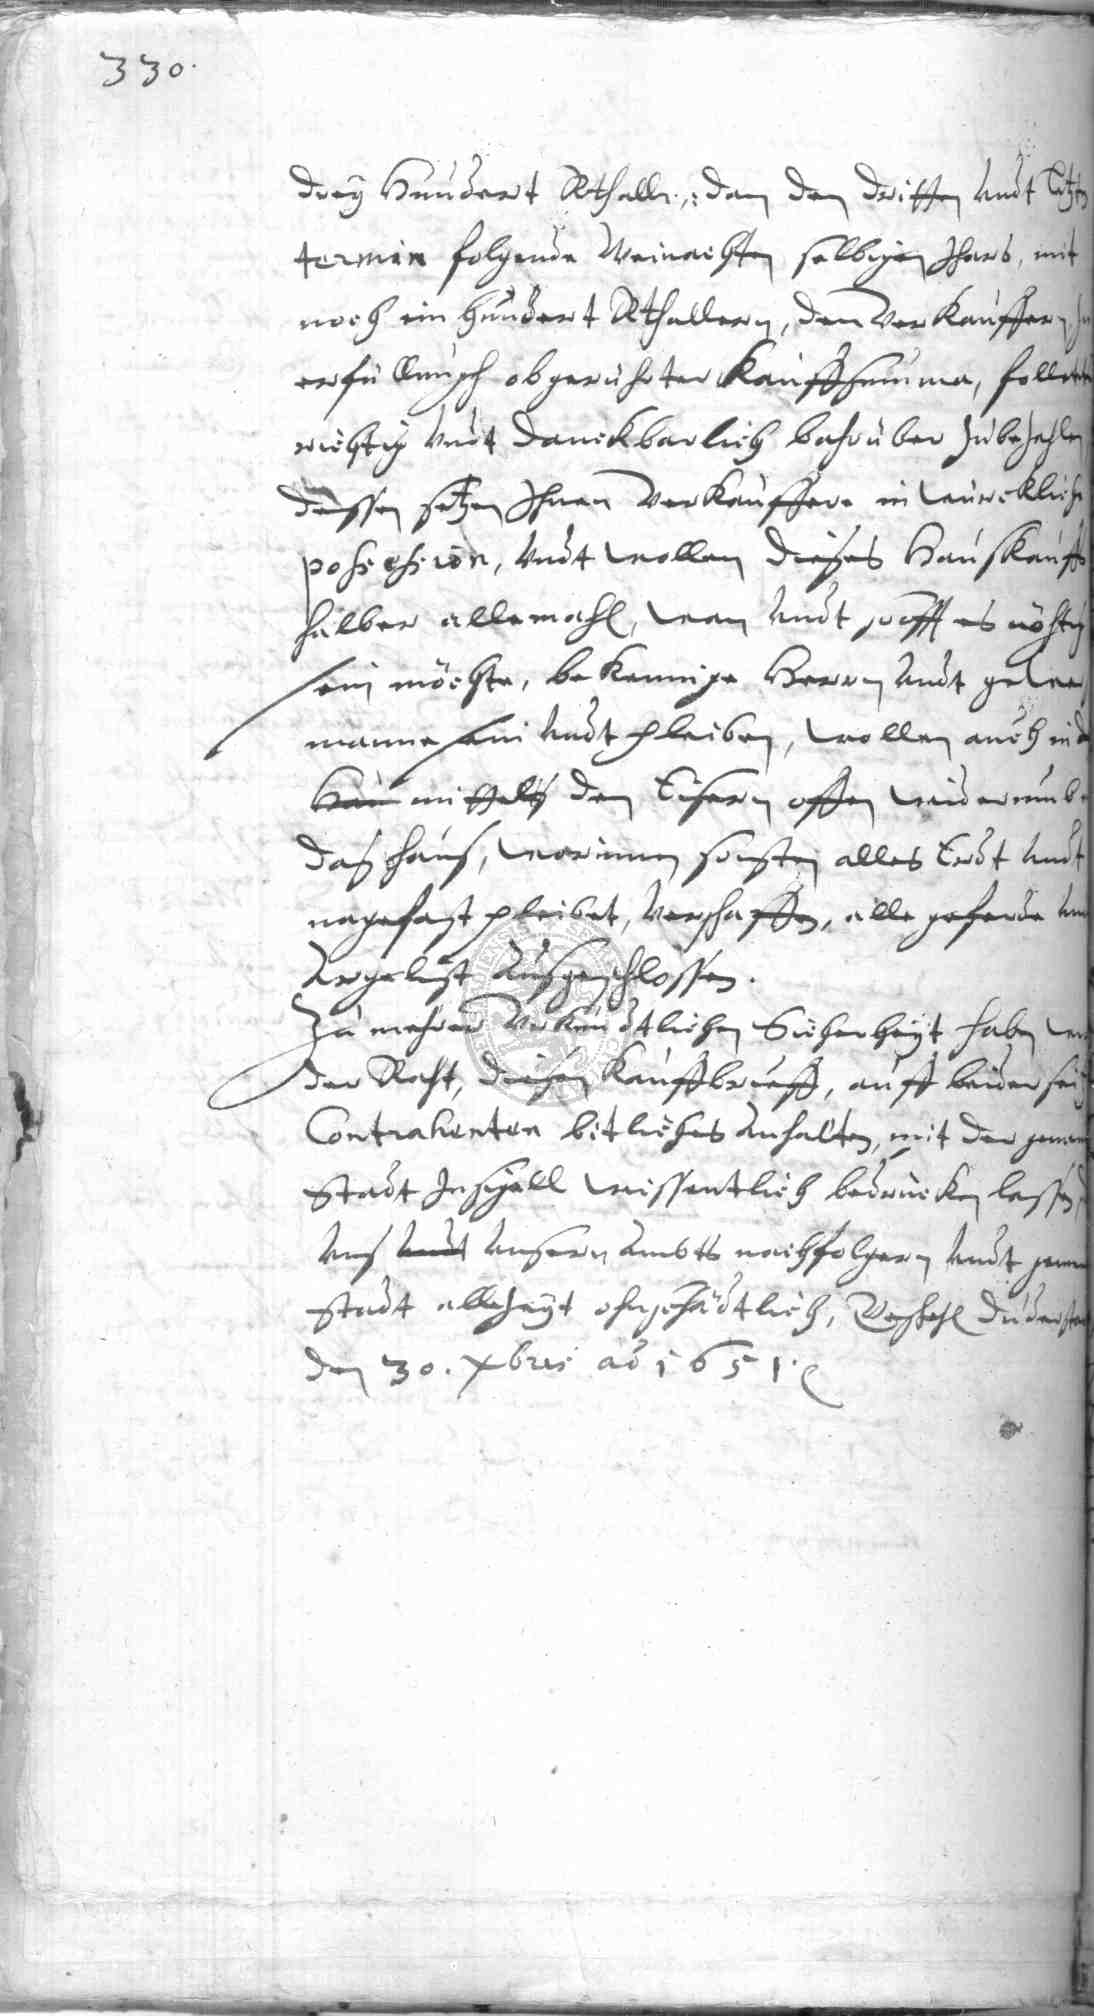 330.
drey Hundert Rthalr.: dan den dritten undt letzten
termin folgende Weinachten selbigen Jhars, mit
noch ein hundert Rthallern, den Verkauffern, zu
erfüllungh obgerührter Kauffsumma, follent
richtig undt danckbarlich bahrüber zubezahlen
dessen setzen Ihnen Verkauffere in würckliche
possession, undt wollen dieses Hauskauffs
halber allemahl, wan undt sooft es nöhtig
sein möchte, bekennige Herrn undt gewer
manne sein undt pleiben, wollen auch in d
mittels den Eisern offen widerumb
das haus, worinnen sonsten alles Erdt undt
nagefast pleibet, verschaffen, alle geferde und
Argelist Ausgeschlossen.
Zu mehrer Urkundtlichen Sicherheyt haben wir
der Raht, diesen Kauffbrieff, auff beider seitz
Contrahenten bitliches anhalten, mit der gemein
Stadt Insygell wissentlich bedrücken lassen,
uns undt unsern Ambts nachfolgern undt gemein
Stadt allezeyt ohnschädtlich, Duderstadt
den 30. Xbris ao 1651.